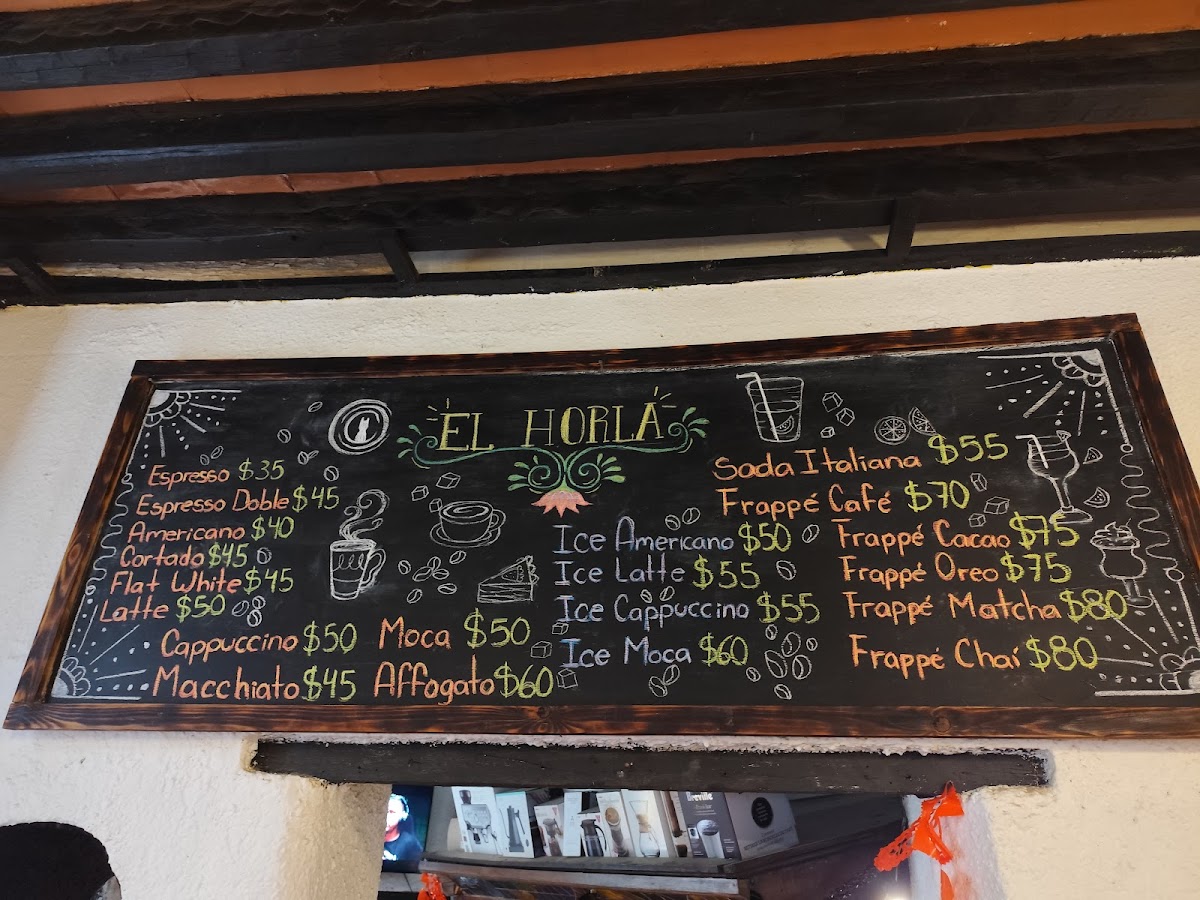 EL HORLA
Espresso $35
Espresso Doble $45
Americano $40
Cortado $45
Flat White $45
Latte $50
Cappuccino $50
Macchiato $45
Moca $50
Affogato $60
Ice Americano $50
Ice Latte $55
Ice Cappuccino $55
Ice Moca $60
Soda Italiana $55
Frappé Café $70
Frappé Cacao $75
Frappé Oreo $75
Frappé Matcha $80
Frappé Chaí $80
Breville